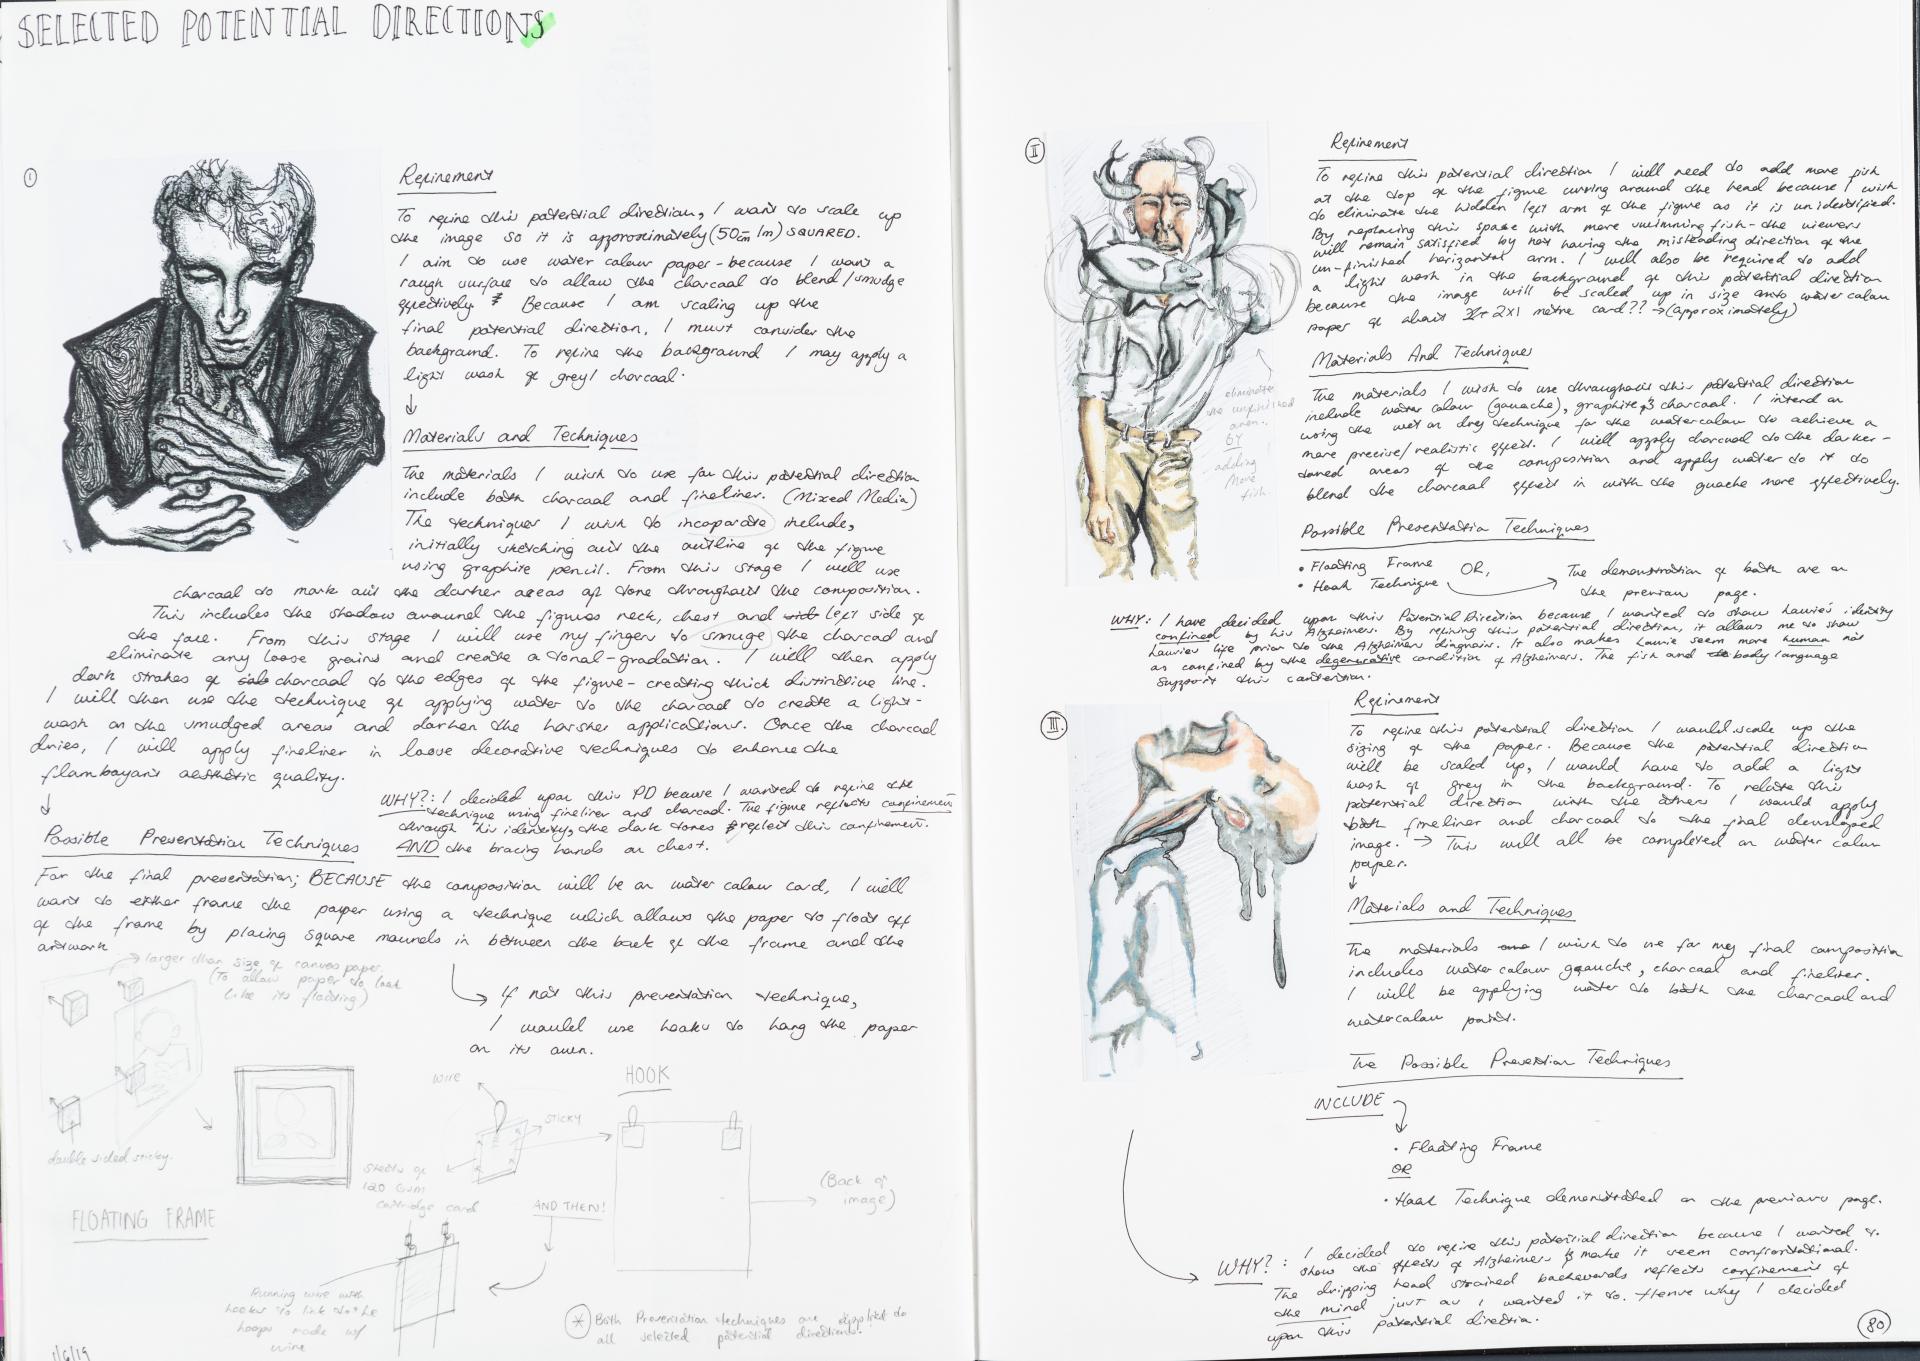 SELECTED POTENTIAL DIRECTIONS
I
Refinement
To refine this potential direction, I want to scale up
the image so it is approximately (50cm 1m) SQUARED.
I aim to use water colour paper - because I want a
rough surface to allow the charcoal to blend/smudge
effectively & Because I am scaling up the
final potential direction, I must consider the
background. To refine the background I may apply a
light wash of grey/charcoal.
Materials and Techniques
The materials I wish to use for this potential direction
include both charcoal and fineliner. (Mixed Media)
The techniques I wish to incoparate include,
initially sketching out the outline of the figure
using graphite pencil. From this stage I will use
charcoal to mark out the darker areas of tone throughout the composition.
This includes the shadow around the figures neck, chest and left side of
the face. From this stage I will use my fingers to smuge the charcoal and
eliminate any loose grains and create a tonal-gradation. I will then apply
dark strokes of charcoal to the edges of the figure - creating thick distinctive line.
I will then use the technique of applying water to the charcoal to create a light-
wash on the smudged areas and darken the harsher applications. Once the charcoal
dries, I will apply fineliner in loose decorative techniques to enhance the
flamboyant aesthetic quality.
WHY?: I decided upon this PD because I wanted to refine the
technique using fineliner and charcoal. The figure reflects confinement
through his identity, the dark tones reflect this confinement.
AND the bracing hands on chest.
Possible Presentation Techniques
For the final presentation; BECAUSE the composition will be on water colour card, I will
want to either frame the paper using a technique which allows the paper to float off
of the frame by placing square mounds in between the back of the frame and the
artwork
If not this presentation technique,
I would use hooks to hang the paper
on its own.
larger than size of canvas paper
(To allow paper to look
like its floating)
double sided sticky.
FLOATING FRAME
WIRE
STICKY
HOOK
Sheets of
120 GSM
cartridge card
AND THEN!
(Back of
image)
Running wire with
hooks to link to the
hoops made w/
wire
* Both Presentation techniques are applied to
all selected potential directions.
1/6/19
II
Refinement
To refine this potential direction I will need to add more fish
at the top of the figure curving around the head because I wish
to eliminate the hidden left arm of the figure as it is unidentified.
By replacing this space with more swimming fish - the viewers
will remain satisfied by not having the misleading direction of the
un-finished horizontal arm. I will also be required to add
a light wash in the background of this potential direction
because the image will be scaled up in size onto water colour
paper of about 2x1 metre card?? → (approximately)
eliminate
the unfinished
arm..
BY
adding
more
fish
Materials And Techniques
The materials I wish to use throughout this potential direction
include water colour (gouache), graphite & charcoal. I intend on
using the wet on dry technique for the watercolour to achieve a
more precise/realistic effect. I will apply charcoal to the darker-
toned areas of the composition and apply water to it to
blend the charcoal effect in with the guache more effectively.
Possible Presentation Techniques
• Floating Frame OR,
• Hook Technique
The demonstration of both are on
the previous page.
WHY: I have decided upon this Potential Direction because I wanted to show Laurie's identity
confined by his Alzheimers. By refining this potential direction, it allows me to show
Lauries life prior to the Alzheimers diagnosis. It also makes Laurie seem more human not
as confined by the degenerative condition of Alzheimers. The fish and body language
support this contention.
III
Refinement
To refine this potential direction I would scale up the
sizing of the paper. Because the potential direction
will be scaled up, I would have to add a light
wash of grey in the background. To relate this
potential direction with the others I would apply
both fineliner and charcoal to the final developed
image. → This will all be completed on water colour
paper.
Materials and Techniques
The materials I wish to use for my final composition
includes water colour gouache, charcoal and fineliner.
I will be applying water to both the charcoal and
watercolour paint.
The Possible Presention Techniques
INCLUDE
• Floating Frame
OR
• Hook Technique demonstrated on the previous page.
WHY?: I decided to refine this potential direction because I wanted to
show the effects of Alzheimers & make it seem confrontational.
The dripping head strained backwards reflects confinement of
the mind just as I wanted it to. Hence why I decided
upon this potential direction.
80